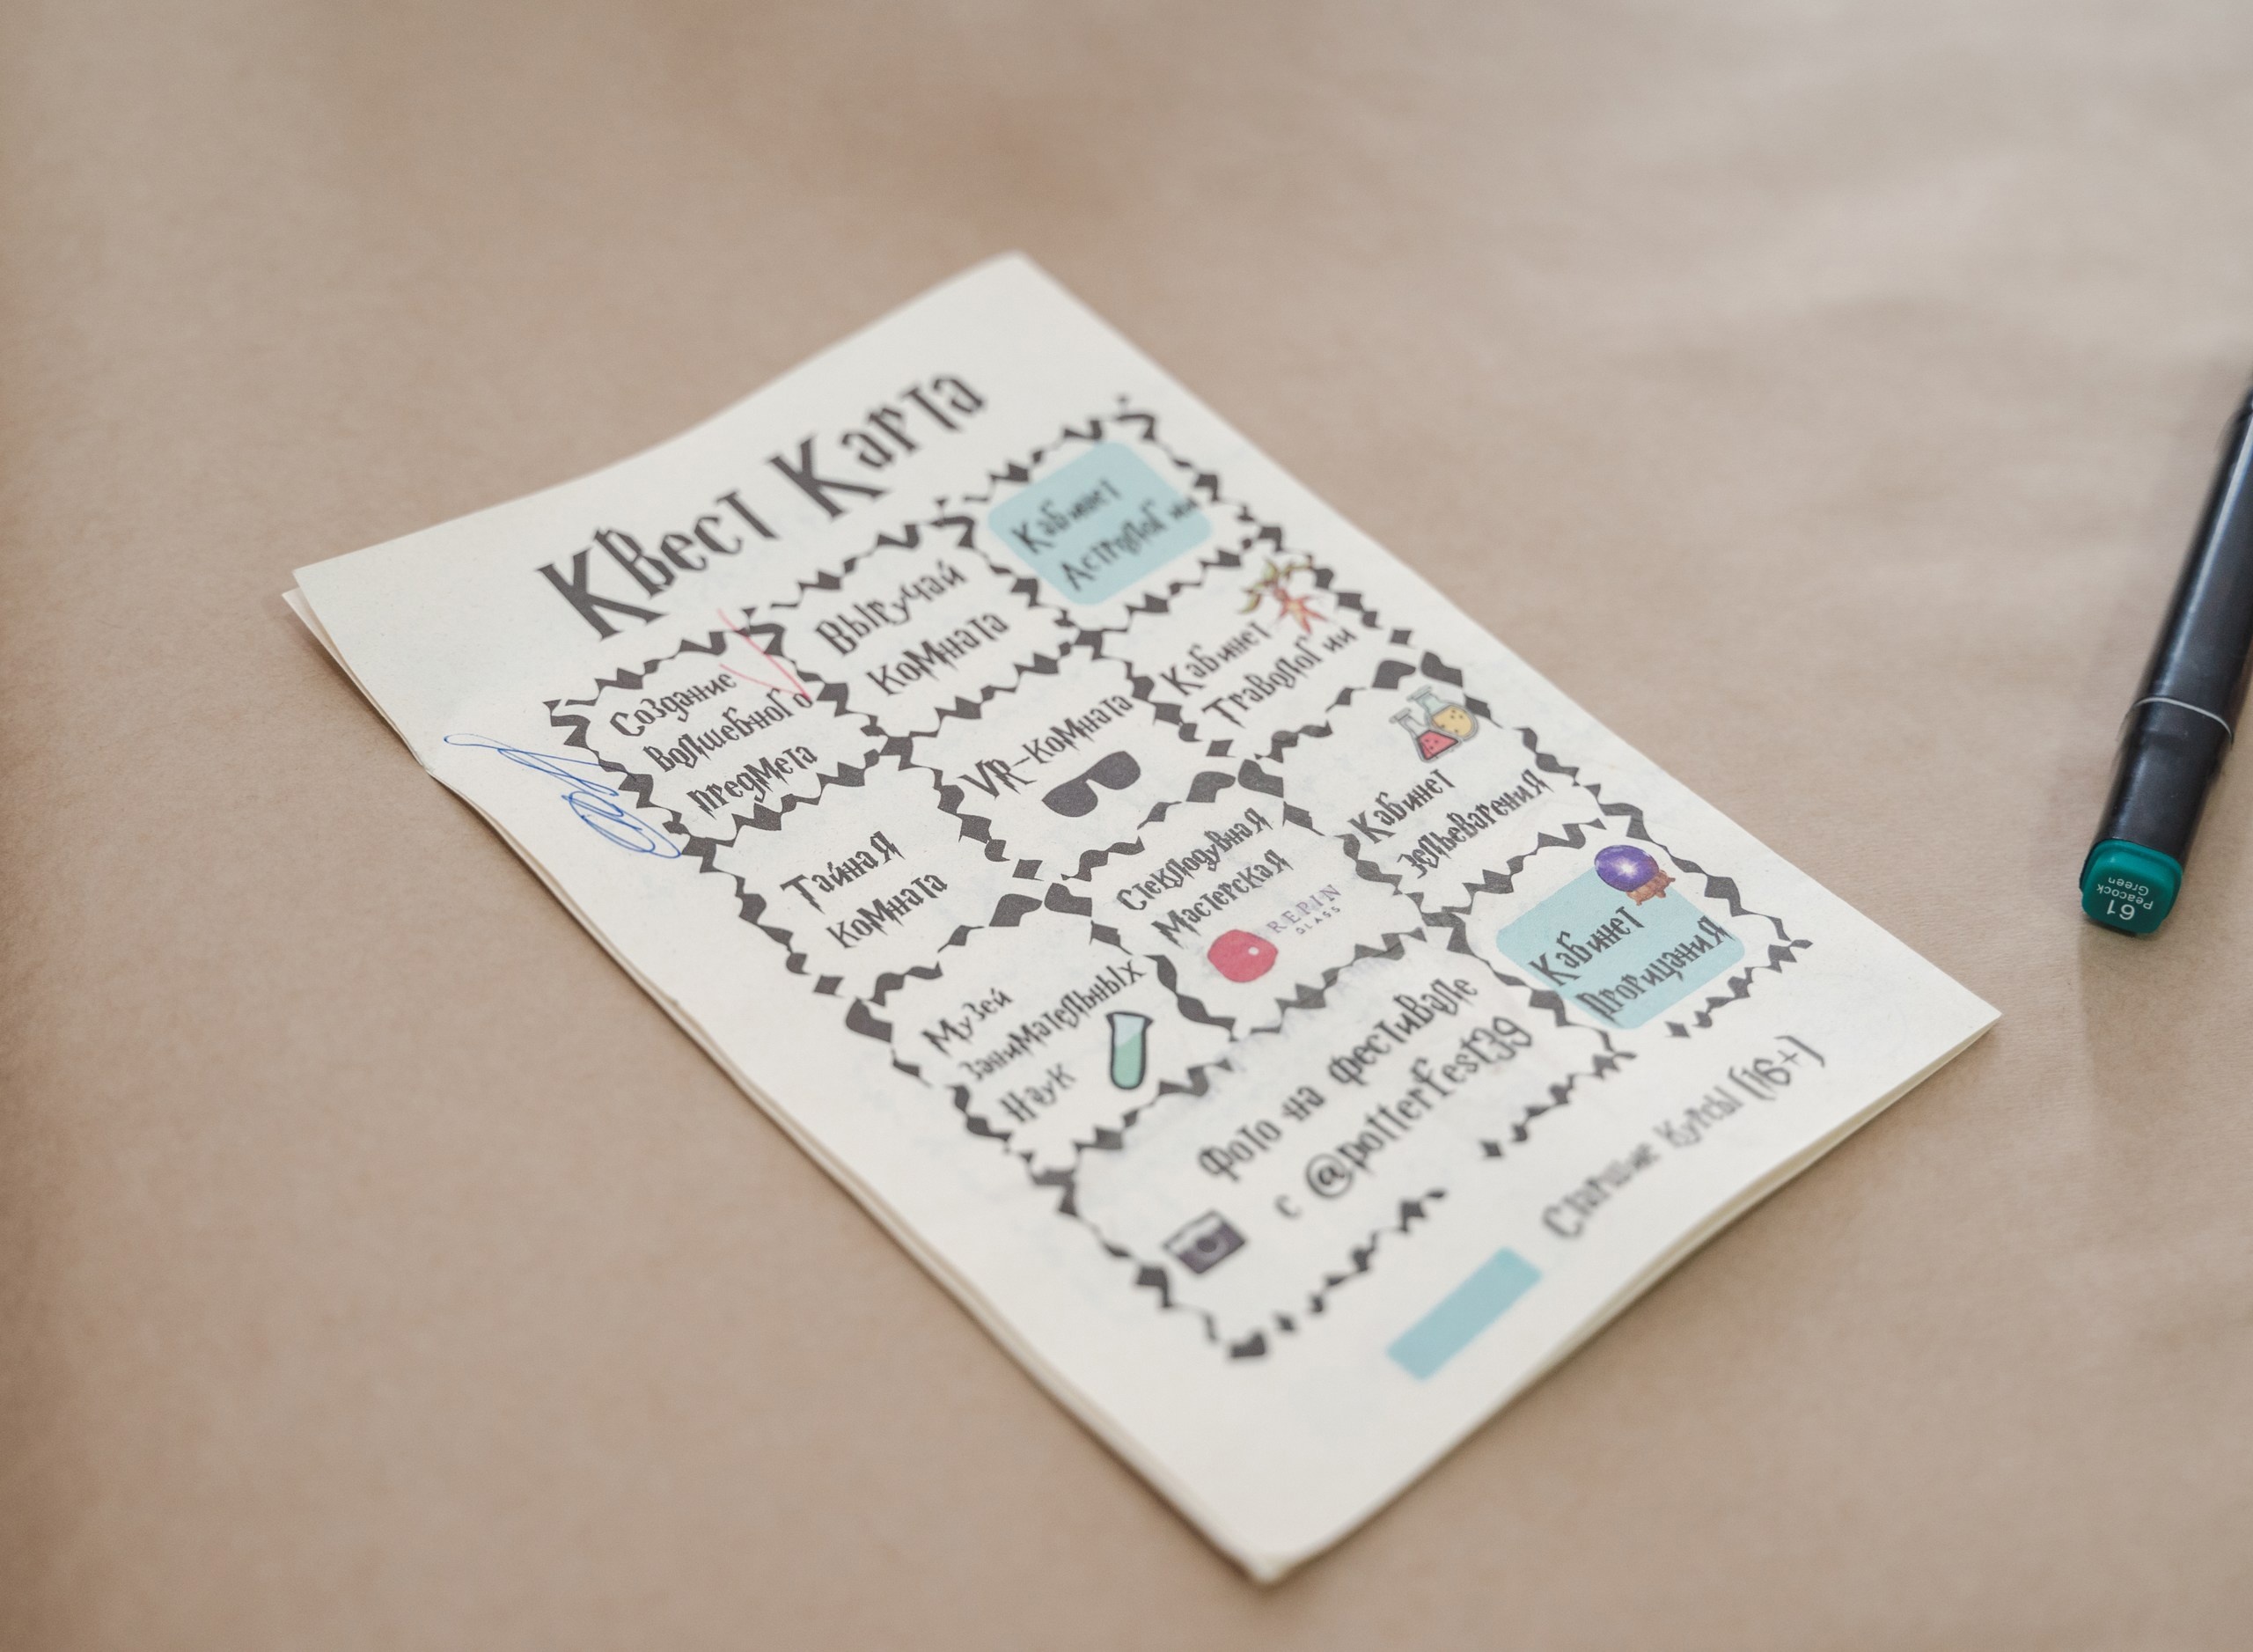 Квест Карта
Создание
волшебного
предмета
Выручай
комната
Кабинет
Астрологии
Тайная
комната
VR-комната
Кабинет
Травологии
Музей
занимательных
наук
Стеклодувная
мастерская
REPIN
GLASS
Кабинет
зельеварения
Фото на фестивале
с @potterfest39
Кабинет
прорицания
Старшие Курсы (16+)
61
Peacock
Green